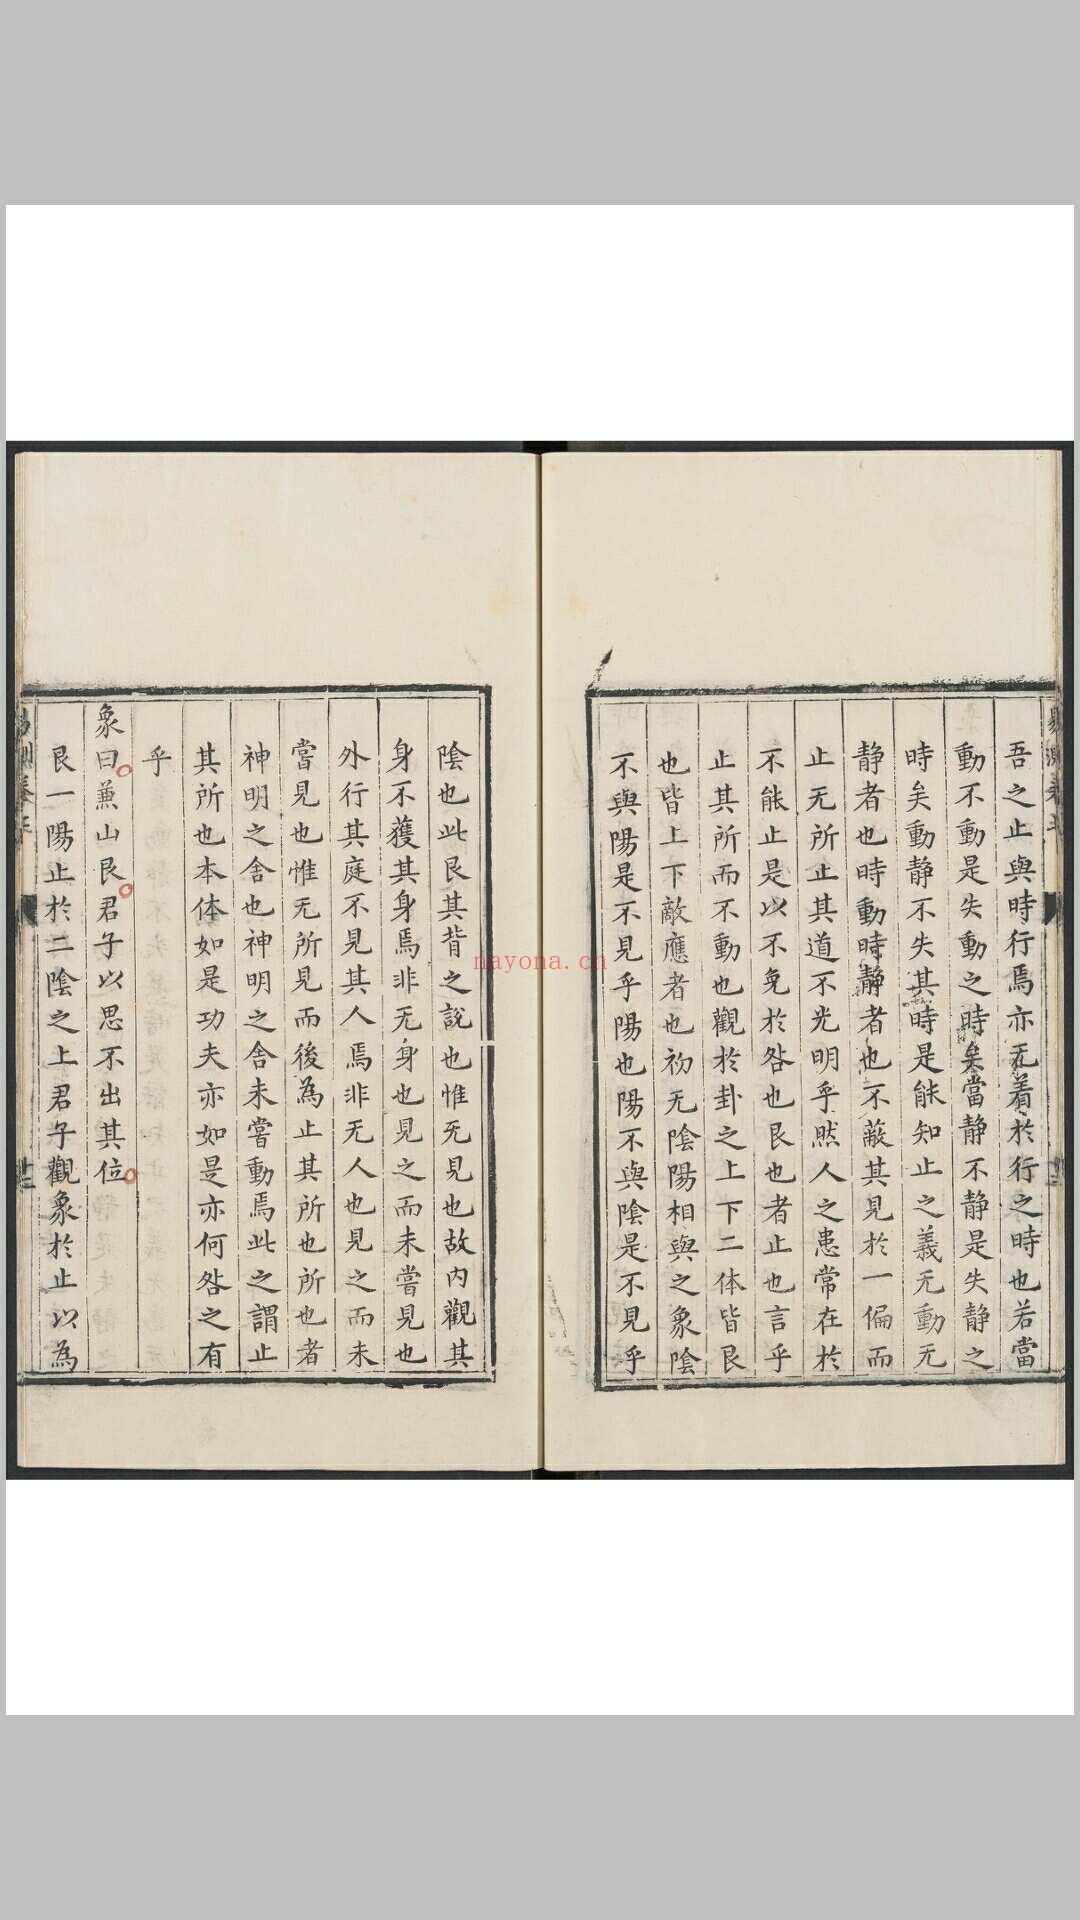 吾之止與時行焉亦无着於行之時也若當
動不動是失動之時矣當靜不靜是失靜之
時矣動靜不失其時是能知止之義无動无
靜者也時動時靜者也不蔽其見於一偏而
止无所止其道不光明乎然人之患常在於
不能止是以不免於咎也艮也者止也言乎
止其所而不動也觀於卦之上下二体皆艮
也皆上下敵應者也初无陰陽相與之象陰
不與陽是不見乎陽也陽不與陰是不見乎
陰也此艮其背之說也惟无見也故內觀其
身不獲其身焉非无身也見之而未嘗見也
外行其庭不見其人焉非无人也見之而未
嘗見也惟无所見而後為止其所也所也者
神明之舍也神明之舍未嘗動焉此之謂止
其所也本体如是功夫亦如是亦何咎之有
乎
象曰兼山艮君子以思不出其位
艮一陽止於二陰之上君子觀象於止以為
nayona.cn